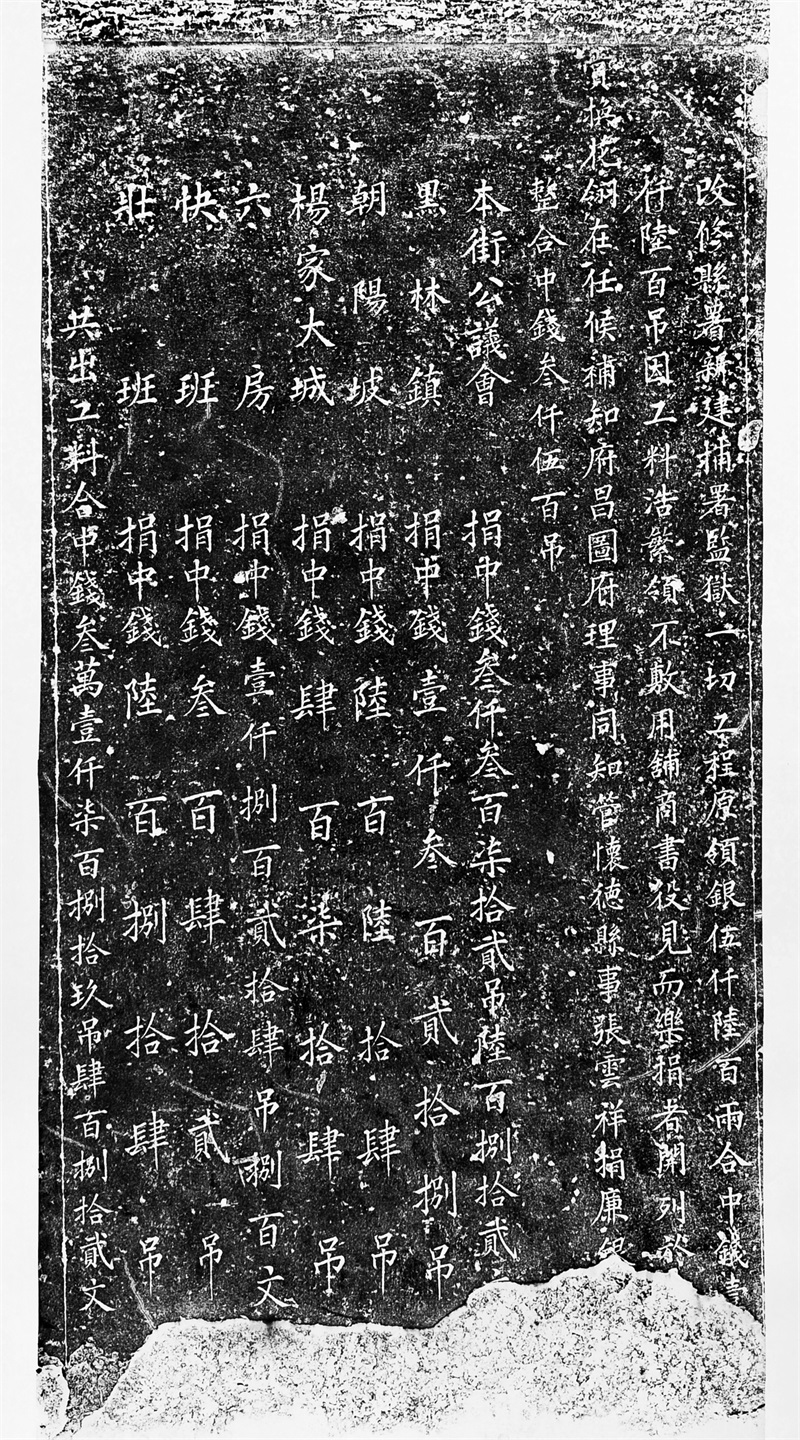 改修縣署新建捕署監獄一切工程原領銀伍仟陸百兩合中錢壹
仟陸百吊因工料浩繁領不敷用舖商書役見而樂捐者開列於
翎在任候補知府昌圖府理事同知管懷德縣事張雲祥捐廉銀
整合中錢叁仟伍百吊
本街公議會 捐中錢叁仟叁百柒拾貳吊陸百捌拾貳
黑林鎮 捐中錢壹仟叁百貳拾捌吊
朝陽坡 捐中錢陸百陸拾肆吊
楊家大城 捐中錢肆百柒拾肆吊
六房 捐中錢壹仟捌百貳拾肆吊捌百文
快班 捐中錢叁百肆拾貳吊
壯班 捐中錢陸百捌拾肆吊
共出工料合中錢叁萬壹仟柒百捌拾玖吊肆百捌拾貳文